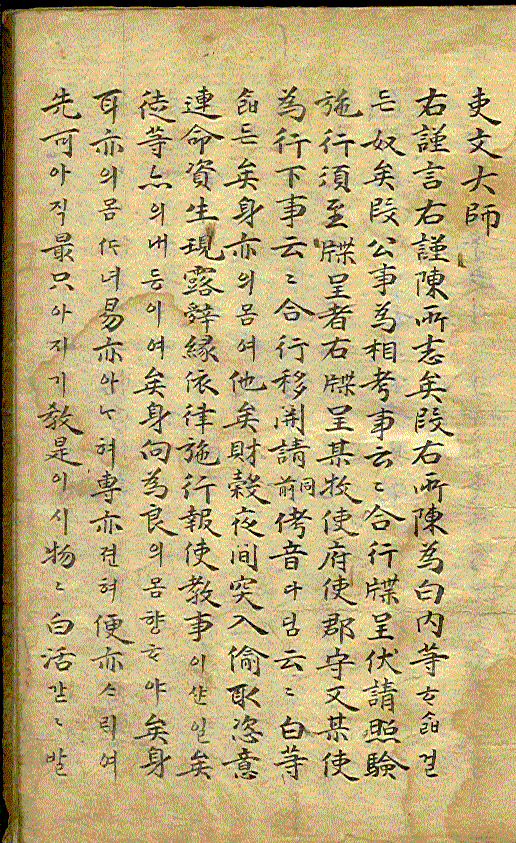 吏文大師
右謹言右謹陳所志矣段右所陳爲白內等ᄒᆞᄉᆞᆲ걸
든奴矣段公事爲相考事云〻合行牒呈伏請照驗
施行須至牒呈者右牒呈某牧使府使郡守又某使
爲行下事云〻合行移關請同前侤音다딤云〻白等
ᄉᆞᆲ든矣身亦의몸여他矣財穀夜間突入偸取恣意
連命資生現露辭緣依律施行報使敎事이샨일矣
徒等亦의내등이여矣身向爲良의몸향ᄒᆞ야矣身
耳亦의몸ᄯᆞ녀易亦아ᄂᆞ혀專亦젼혀便亦스리여
先可아직最只아ᄌᆞ기敎是이시物〻白活갇〻발